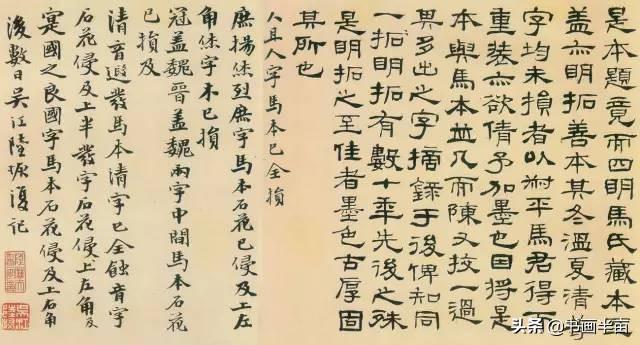 是本題竟而四明馬氏藏本
盖亦明拓善本其冬溫夏清等
字均未損者以平馬君得而
重裝亦欲倩予加墨也因将是
本與馬本並几而陳又挍一過
異多出之字摘錄于後俾知同
一拓明拓有數十年先後之殊
是明拓之至佳者墨色古厚固
其所也
人且人字馬本已全損
庶揚烋烈庶字馬本石花已侵及上左
角烋字末已損
冠盖魏晉盖魏兩字中間馬本石花
已損及
清音遐發馬本清字已全蝕音字
石花侵及上半發字石花侵上左角及
寔國之良國字馬本石花侵及上右角
後數日吴江陸恢復記
头条 @书画半亩